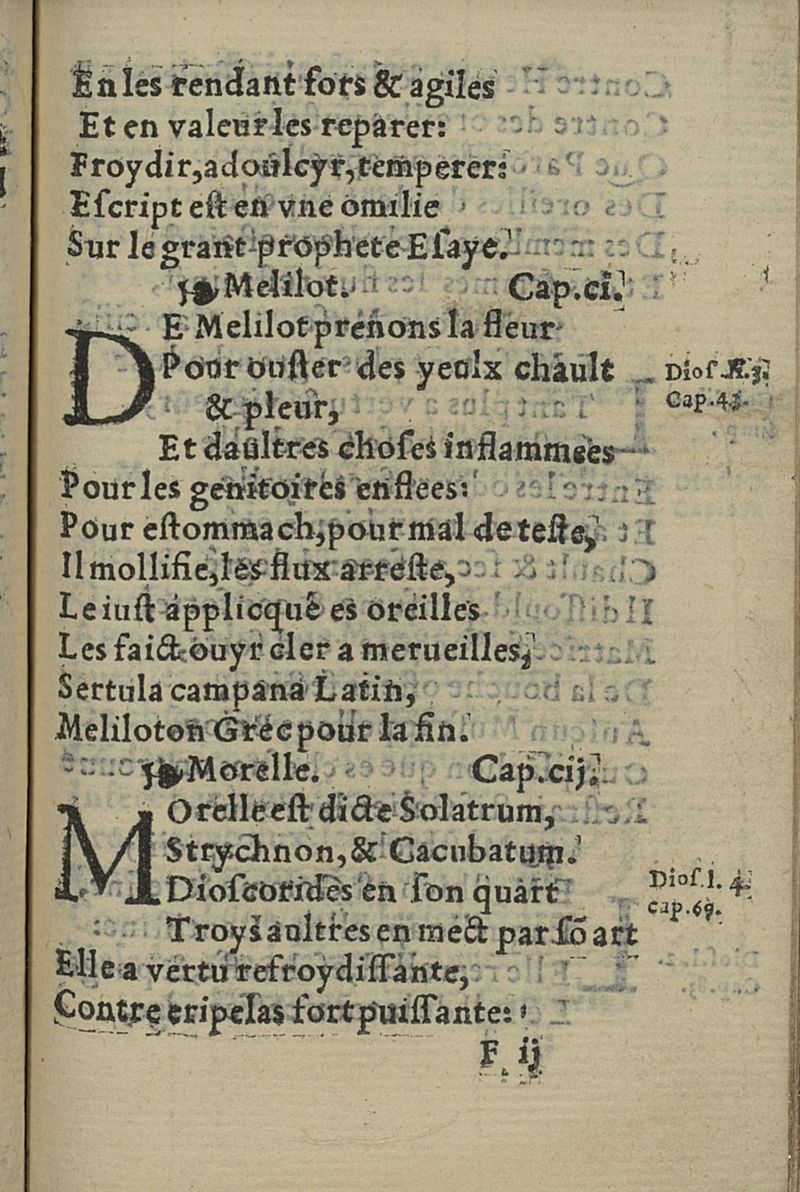 En les rendant fors & agiles
Et en valeur les reparer:
Froydir, adoulcyr, temperer:
Eſcript eſt en vne omilie
Sur le grant prophete Eſaye.
Melilot. Cap.ci.
DE Melilot prenons la fleur
Pour ouſter des yeulx chault
& pleur,
Dioſ.
Cap.43.
Et daultres choſes inflammees
Pour les genitoires enflees:
Pour eſtommach, pour mal de teſte,
Il mollifie, les flux arreſte,
Le iuſt applicqué es oreilles
Les faict ouyr cler a merueilles,
Sertula campana Latin,
Meliloton Grec pour la fin.
Morelle. Cap.cij.
MOrelle eſt dicte Solatrum,
Strychnon, & Cacubatum.
Dioſcorides en ſon quart
Dioſ.l. 4.
cap.69.
Troys aultres en mect par ſõ art
Elle a vertu refroydiſſante,
Contre eripelas fort puiſſante:
F ij